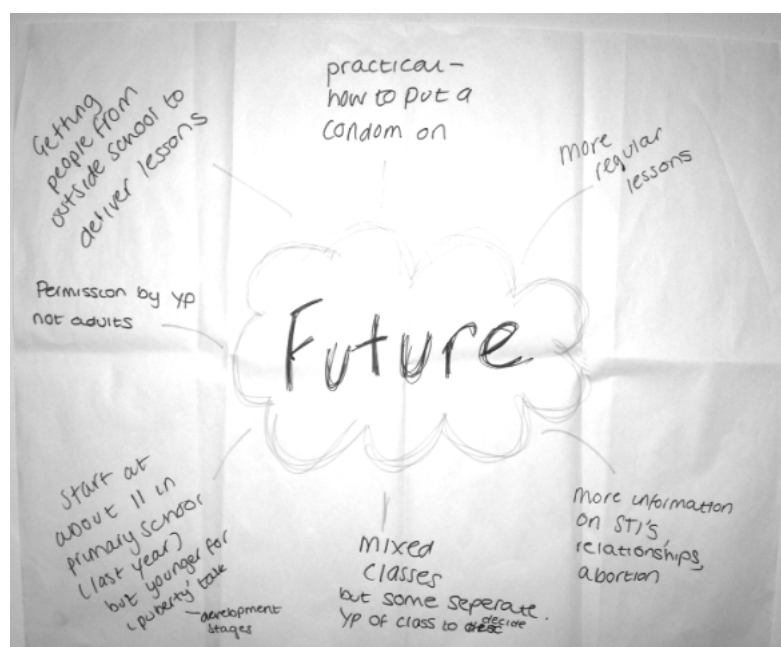 Getting
people from
outside school to
deliver lessons
practical –
how to put a
condom on
more
regular
lessons
Permission by YP
not adults
Future
Start at
about 11 in
primary school
(last year)
but younger for
'puberty' talk
– development
stages
mixed
classes
but some seperate.
YP of class to decide
more information
on STI'S,
relationships,
abortion